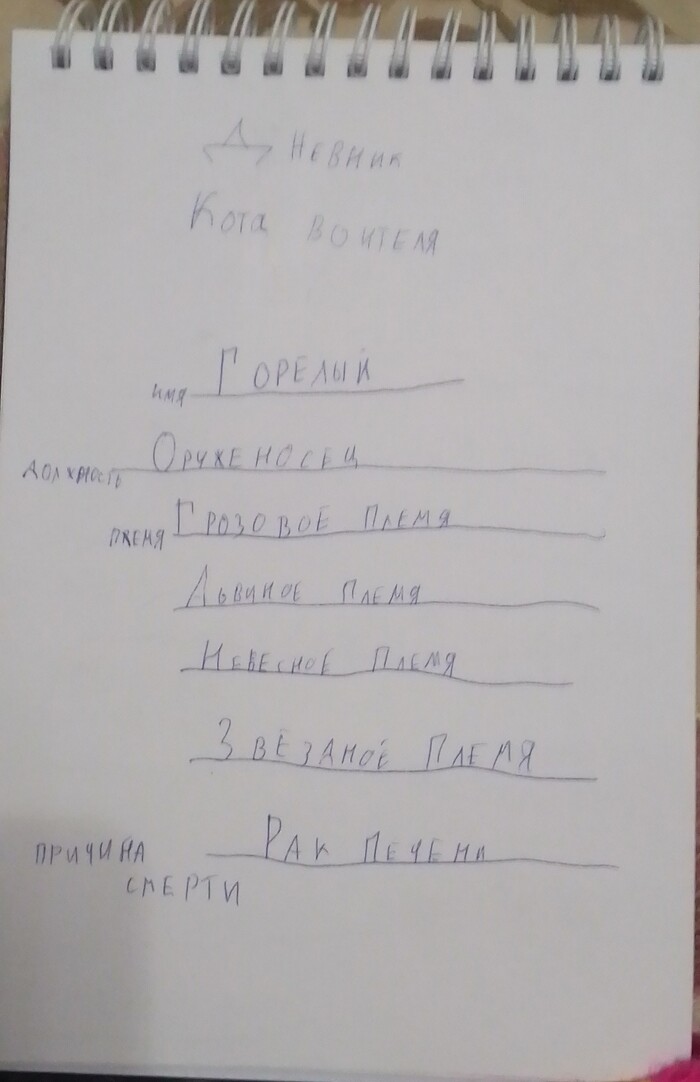 Дневник
Кота воителя
имя Горелый
должность Оруженосец
племя Грозовое племя
Львиное племя
Небесное племя
Звёздное племя
причина Рак печени
смерти